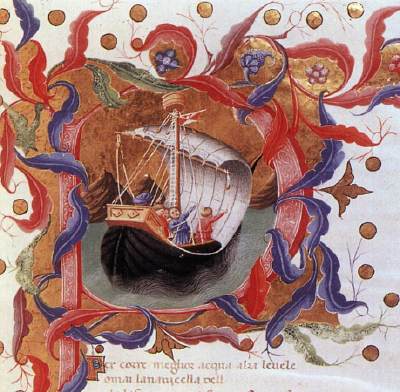 Per correr meglior acqua alza leuele
omai lanauicella dell